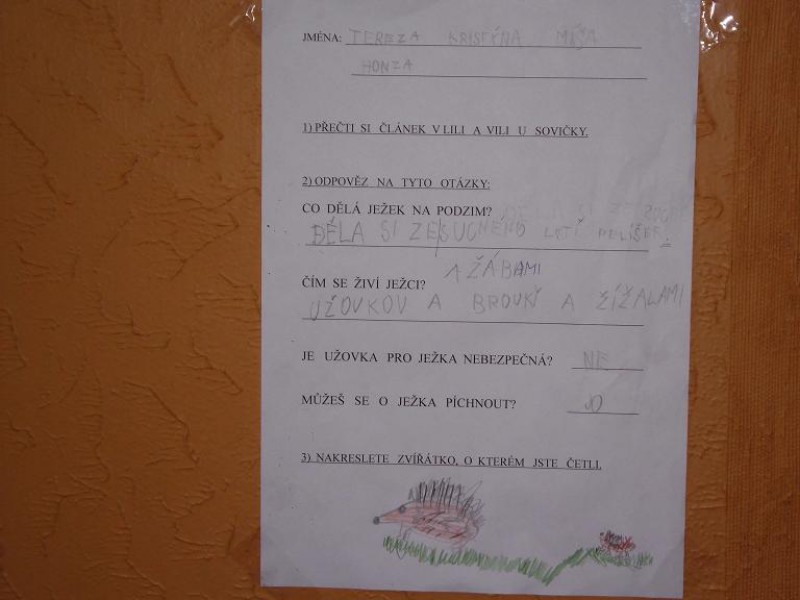 JMÉNA: TEREZA KRISTÝNA MÁJA
HONZA
1) PŘEČTI SI ČLÁNEK V LILI A VILI U SOVIČKY.
2) ODPOVĚZ NA TYTO OTÁZKY:
CO DĚLÁ JEŽEK NA PODZIM?
DĚLA SI ZE SUCHÉHO LETÍ PELÍŠEK.
ČÍM SE ŽIVÍ JEŽCI? A ŽÁBAMI
UŽOVKOV A BROUK A ŽÍŽALAMI
JE UŽOVKA PRO JEŽKA NEBEZPEČNÁ? NE
MŮŽEŠ SE O JEŽKA PÍCHNOUT? JO
3) NAKRESLETE ZVÍŘÁTKO, O KTERÉM JSTE ČETLI.